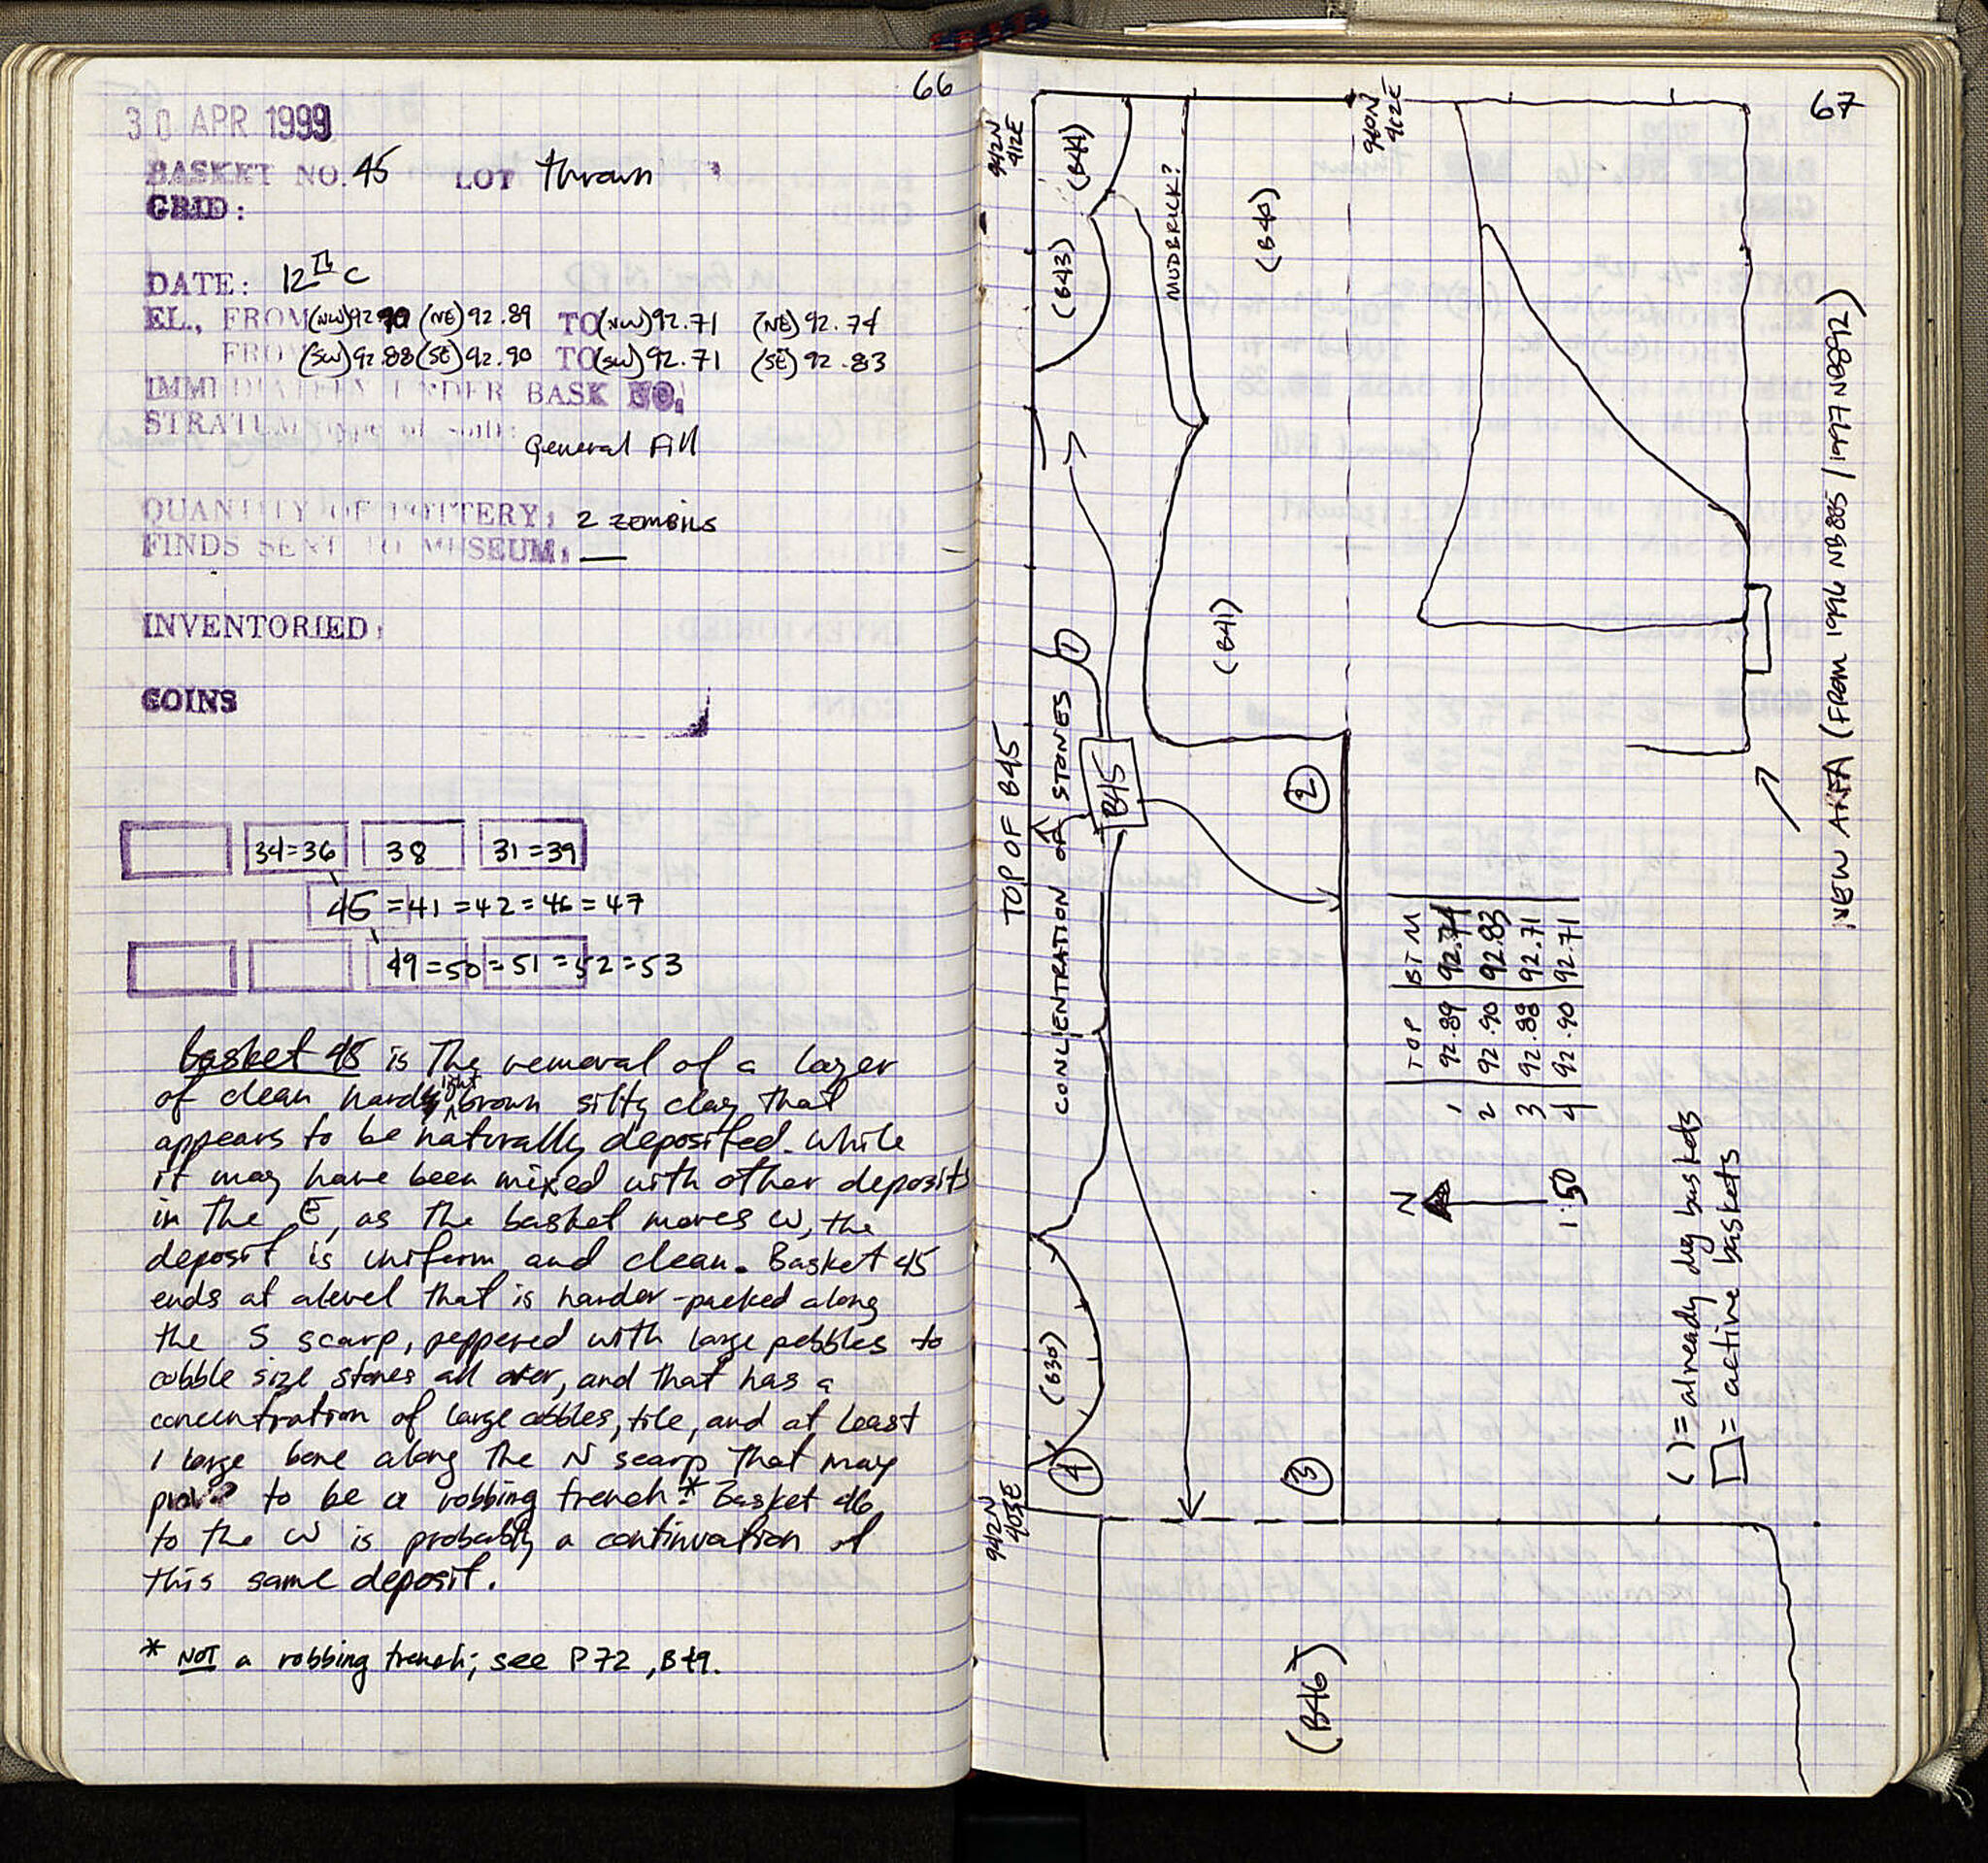 66
30 APR 1999
BASKET NO. 45 LOT thrown
GRID:
DATE: 12th C
EL., FROM (NW) 92.90 (NE) 92.89 TO (NW) 92.71 (NE) 92.74
FROM (SW) 92.88 (SE) 92.90 TO (SW) 92.71 (SE) 92.83
IMMEDIATELY UNDER BASK NO.
STRATUM (type of soil):
General Fill
QUANTITY OF POTTERY: 2 ZEMBILS
FINDS SENT TO MUSEUM: —
INVENTORIED:
COINS
34=36 38 31=39
45 =41 =42 =46 =47
49=50=51=52=53
Basket 45 is the removal of a layer
of clean hard light brown silty clay that
appears to be naturally deposited. While
it may have been mixed with other deposits
in the E, as the basket moves W, the
deposit is uniform and clean. Basket 45
ends at a level that is harder-packed along
the S scarp, peppered with large pebbles to
cobble size stones all over, and that has a
concentration of large cobbles, tile, and at least
1 large bone along the N scarp that may
prove to be a robbing trench.* Basket 46
to the W is probably a continuation of
this same deposit.
* NOT a robbing trench; see P72, B49.
67
942N
412E
940N
912E
(B44)
(B43)
MUDBRICK?
(B40)
(B41)
TOP OF B45
CONCENTRATION OF STONES
B45
1
2
3
4
(B30)
942N
403E
(B46)
TOP BTM
1 92.89 92.74
2 92.90 92.83
3 92.88 92.71
4 92.90 92.71
N
1:50
( ) = already dug baskets
= active baskets
NEW AREA (FROM 1996 NB885 / 1997 NB892)